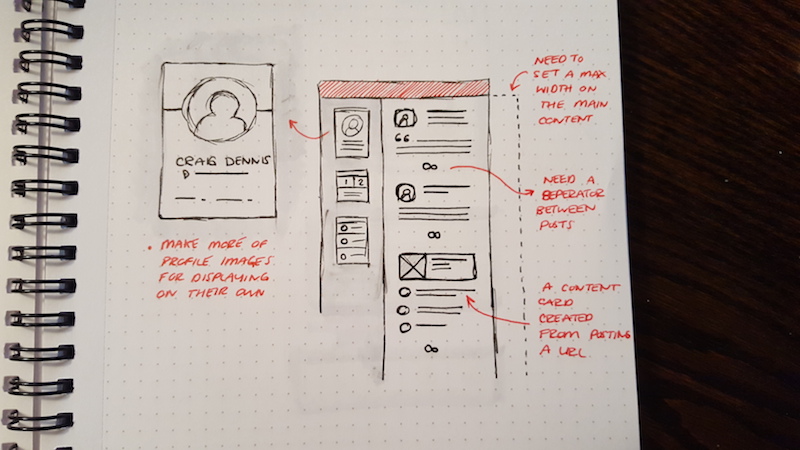 CRAIG DENNIS
• MAKE MORE OF
PROFILE IMAGES
FOR DISPLAYING
ON THEIR OWN
1 2
NEED TO
SET A MAX
WIDTH ON
THE MAIN
CONTENT
NEED A
SEPERATOR
BETWEEN
POSTS
A CONTENT
CARD
CREATED
FROM POSTING
A URL